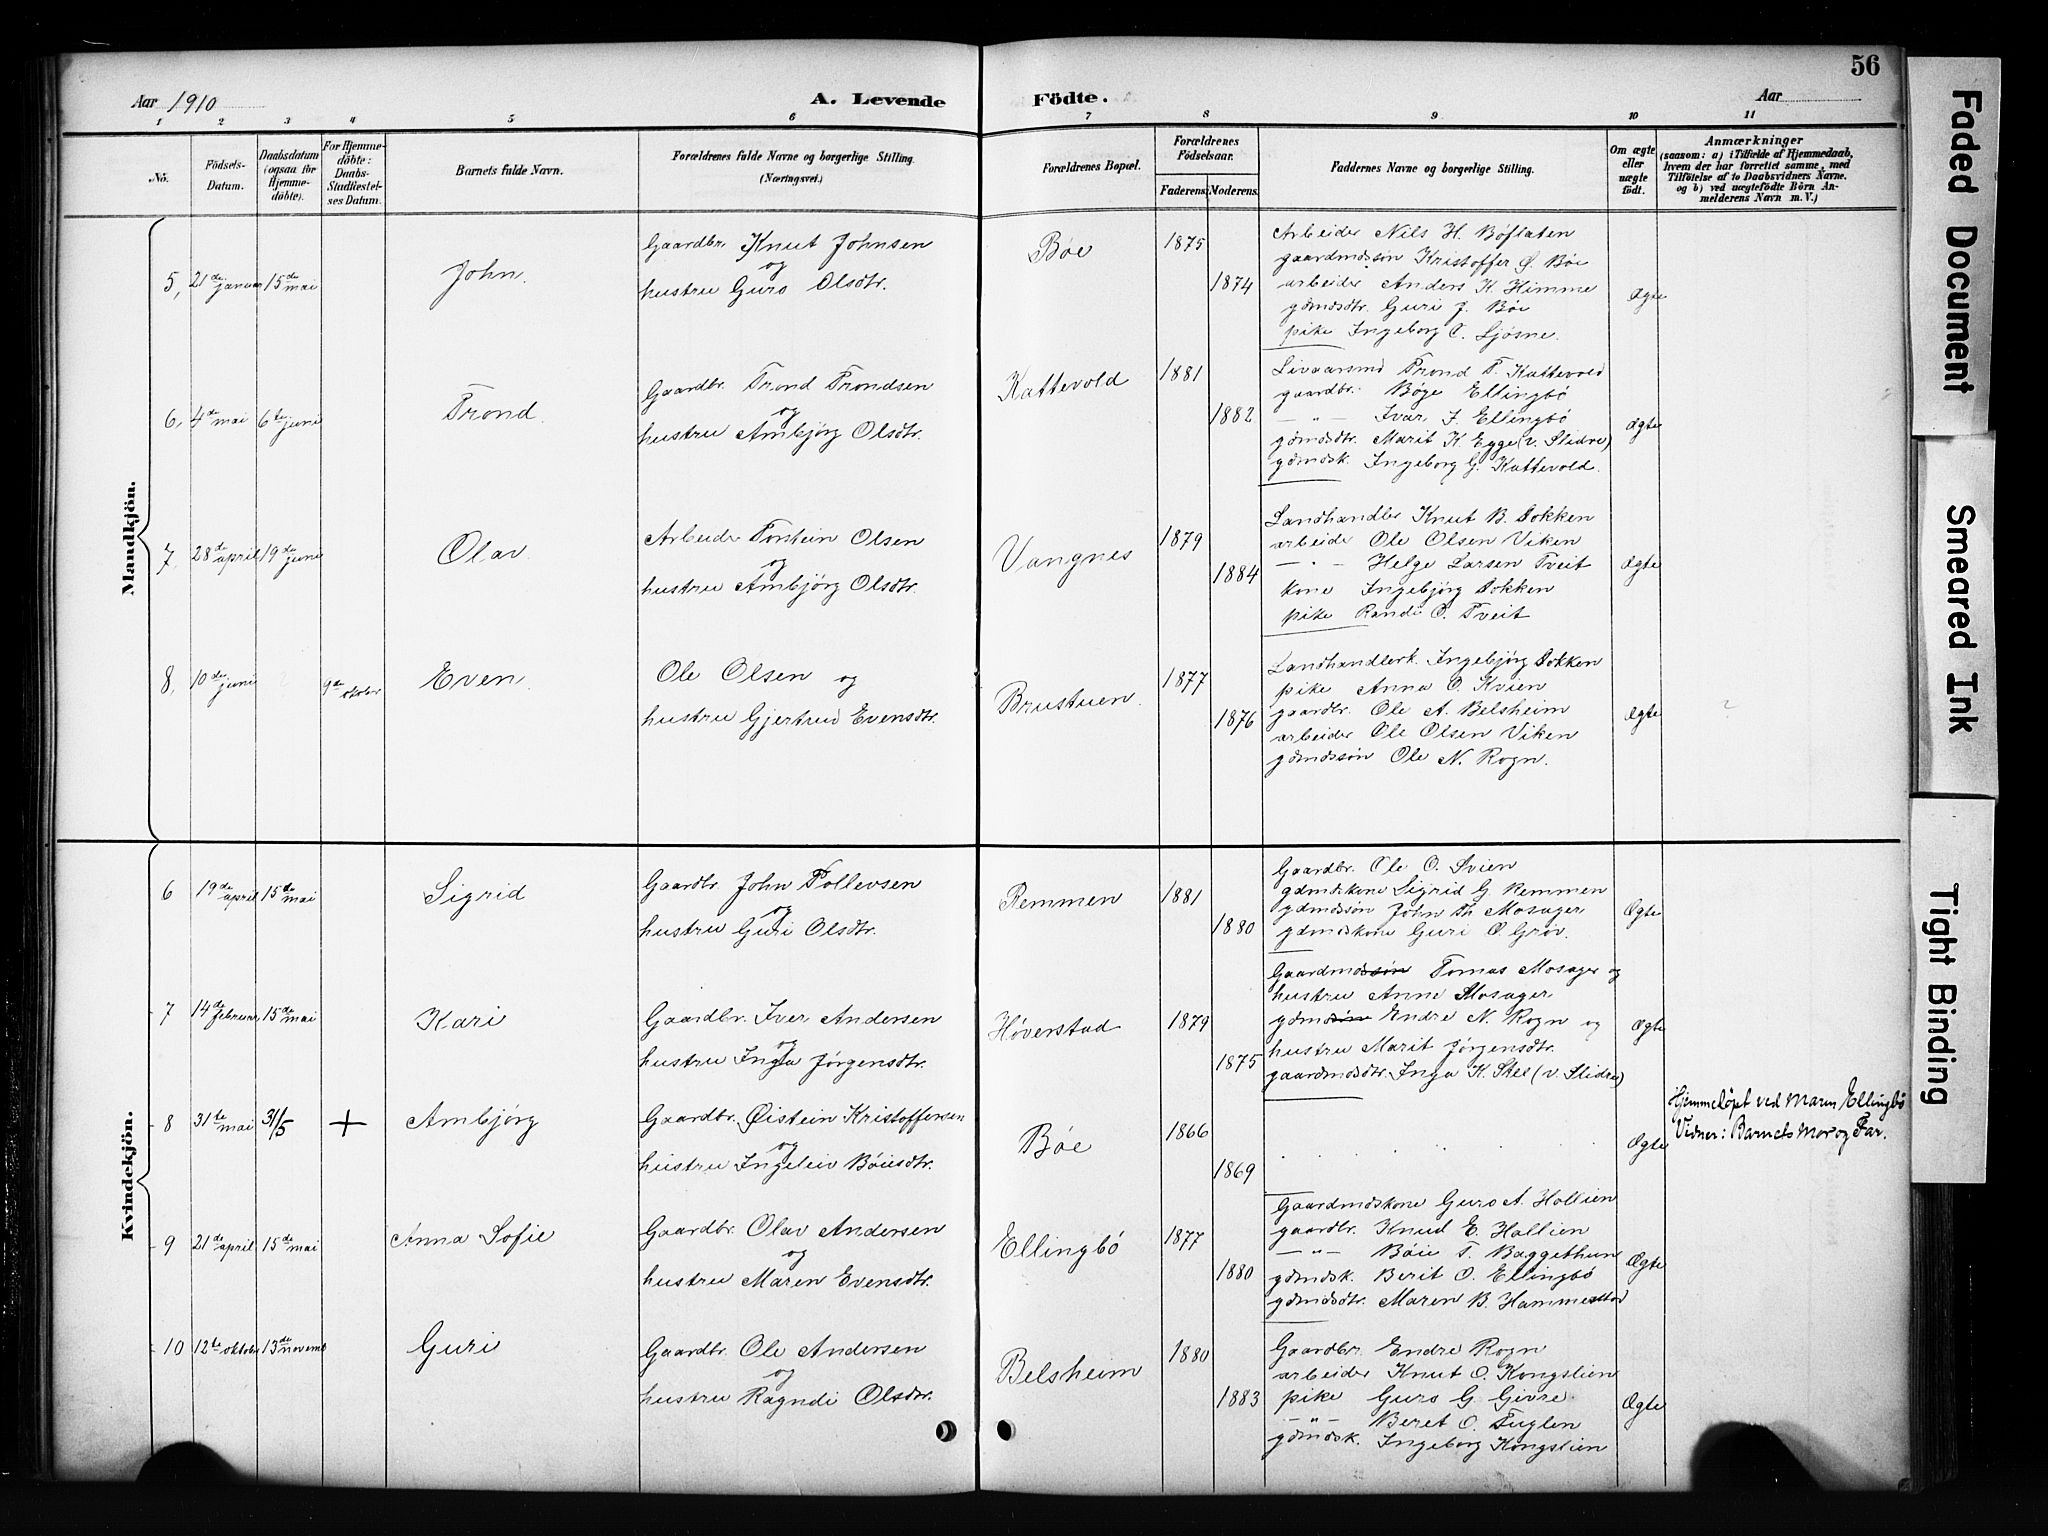 56
Aar 1910
A. Levende Födte.
Aar
1 2 3 4 5 6 7 8 9 10 11
No.
Födsels-Datum.
Daabsdatum (ogsaa for Hjemme-döbte).
For Hjemme-döbte: Daabs-Stadfæstel-ses Datum.
Barnets fulde Navn.
Forældrenes fulde Navne og borgerlige Stilling.
(Næringsvei.)
Forældrenes Bopæl.
Forældrenes Födselsaar.
Faderens. Moderens.
Faddernes Navne og borgerlige Stilling.
Om ægte eller uægte födt.
Anmærkninger
(saasom: a) i Tilfælde af Hjemmedaab,
hvem der har forrettet samme, med
Tilföielse af to Daabsvidners Navne.
og b) ved uægtefödte Börn An-
melderens Navn m. V.)
Mandkjön.
5, 21de januar 15de mai
John.
Gaardbr. Knut Johnsen
og
hustru Guro Olsdtr.
Bøe
1875
1874
Arbeider Nils H. Bøflaten
gaardmdssøn Kristoffer Ø. Bøe
arbeider Anders K. Himme
gdmdsdtr. Guri J. Bøe
pike Ingeborg C. Ljøsne.
Ægte
6, 4de mai 6te juni
Trond.
Gaardbr. Trond Trondsen
og
hustru Ambjørg Olsdtr.
Kattevold
1881
1882
Livaarsmd Trond T. Kattevold
gaardbr. Bøge Ellingbø
— " — Ivar J. Ellingbø
gdmdsdtr. Marit K. Egge (v. Slidre)
gdmdsk. Ingeborg G. Kattevold.
Ægte
7, 28de april 19de juni
Olav.
Arbeider Torstein Olsen
og
hustru Ambjørg Olsdtr.
Vangnes
1879
1884
Landhandler Knut B. Dokken
arbeider Ole Olsen Viken
— " — Helge Larsen Tveit
kone Ingebjørg Dokken
pike Randi O. Tveit
Ægte
8, 10de juni 9de oktober
Even.
Ole Olsen og
hustru Gjertrud Evensdtr.
Brustuen.
1877
1876
Landhandlerk. Ingebjørg Dokken
pike Anna O. Kvien
gaardbr. Ole A. Belsheim
arbeider Ole Olsen Viken
gdmdssøn Ole N. Rogn.
Ægte
Kvindekjön.
6 19de april 15de mai
Sigrid
Gaardbr. John Tollevsen
og
hustru Guri Olsdtr.
Remmen
1881
1880
Gaardbr. Ole O. Svien
gdmdskone Sigrid G. Remmen
gdmdssøn John Th. Mosager
gdmdskone Guri O. Grøv.
Ægte
7 14de februar 15de mai
Kari
Gaardbr. Iver Andersen
og
hustru Inga Jørgensdtr.
Høverstad
1879
1875
Gaardmdssøn Tomas Mosager og
hustru Anne Mosager
gdmdssøn Endre N. Rogn og
hustru Marit Jørgensdtr.
gaardmdsdtr. Inga K. Stee (v. Slidre)
Ægte
8 31te mai 31/5 +
Ambjørg
Gaardbr. Øistein Kristoffersen
og
hustru Ingeleiv Bøiesdtr.
Bøe
1866
1869
Ægte
Hjemmeløpt ved Maren Ellingbø
Vidner: Barnets Mor og Far.
9 21de april 15de mai
Anna Sofie
Gaardbr. Olav Andersen
og
hustru Maren Evensdtr.
Ellingbö
1877
1880
Gaardmdskone Guro A. Hallien
gaardbr. Knud E. Hallien
— " — Bøie T. Baggethun
gdmdsk. Berit O. Ellingbø
gdmdsdtr. Maren B. Hammerstad
Ægte
10 12te oktober 13de novemb
Guri
Gaardbr. Ole Andersen
og
hustru Ragndi Olsdtr.
Belsheim
1880
1883
Gaardbr. Endre Rogn
arbeider Knut O. Kongslien
pike Guro G. Givre
— " — Beret O. Fuglen
gdmdsk. Ingeborg Kongslien
Ægte
Faded Document
Smeared Ink
Tight Binding